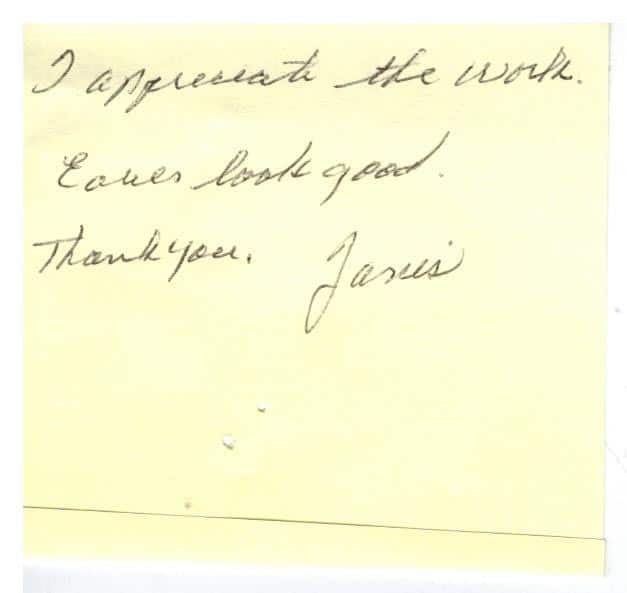 I appreciate the work.
Eaves look good.
Thank you. Janis